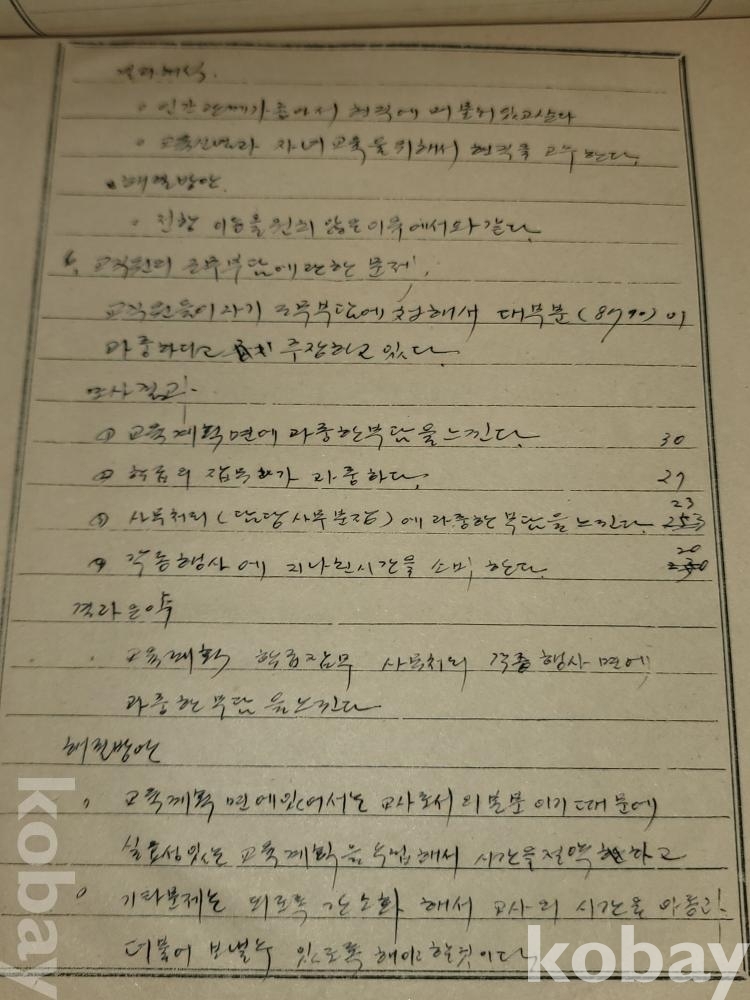 결과해석.
◦ 인간관계가 좋아서 현직에 머물러 있고 싶다
◦ 교육신념과 자녀교육을 위해서 현직을 고수한다.
• 해결방안.
◦ 전항 이동을 원치 않는 이유에서와 같다.
6. 교직원의 근무부담에 관한 문제.
교직원들이 자기 근무부담에 대해서 대부분 (87%)이
과중하다고 주장하고 있다.
조사결과.
① 교육계획면에 과중한 부담을 느낀다. 30
② 학급의 잡무가 과중하다. 27
23
③ 사무처리 (담당사무분장)에 과중한 부담을 느낀다.
20
④ 각종행사에 지나친 시간을 소비한다.
결과요약
교육계획 학급잡무 사무처리 각종행사면에
과중한 부담을 느낀다
해결방안
◦ 교육계획면에 있어서는 교사로서의 본분이기 때문에
실효성있는 교육계획을 수립해서 시간을 절약하고
◦ 기타문제는 되도록 간소화 해서 교사의 시간을 아동과
더불어 보낼 수 있도록 해야 할 것이다.
kobay
kobay
kobay